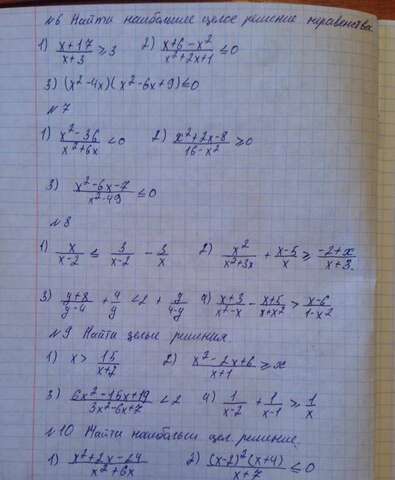 №6 Найти наибольшее целое решение неравенства.
1) (x+17)/(x+3) ≥ 3 2) (x+6-x²)/(x²+2x+1) ≤ 0
3) (x²-4x)(x²-6x+9) ≤ 0
№7
1) (x²-36)/(x²+6x) < 0 2) (x²+2x-8)/(16-x²) ≥ 0
3) (x²-6x-7)/(x²-49) ≤ 0
№8
1) x/(x-2) ≤ 3/(x-2) - 3/x 2) x²/(x²+3x) + (x-5)/x ≥ (-2+x)/(x+3)
3) (y+8)/(y-4) + 4/y < 2 + y/(4-y) 4) (x+3)/(x²-x) - (x+5)/(x+x²) > (x-6)/(1-x²)
№9 Найти целые решения
1) x > 15/(x+2) 2) (x²-2x+6)/(x+1) ≥ x
3) (6x²-15x+19)/(3x²-6x+7) < 2 4) 1/(x-2) + 1/(x-1) ≥ 1/x
№10 Найти наибольш цел. решение.
1) (x²+2x-24)/(x²+6x) 2) (x-2)²(x+4)/(x+7) ≤ 0